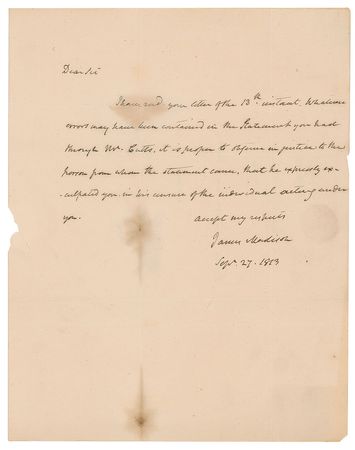 Dear Sir
I have read your letter of the 13th instant. Whatever
errors may have been contained in the Statement you had
through Mr. Cutts, it is proper to observe in justice to the
person from whom the statement came, that he expressly ex-
-culpated you in his censure of the individual acting under
you.
accept my respects
James Madison
Sepr. 27. 1813